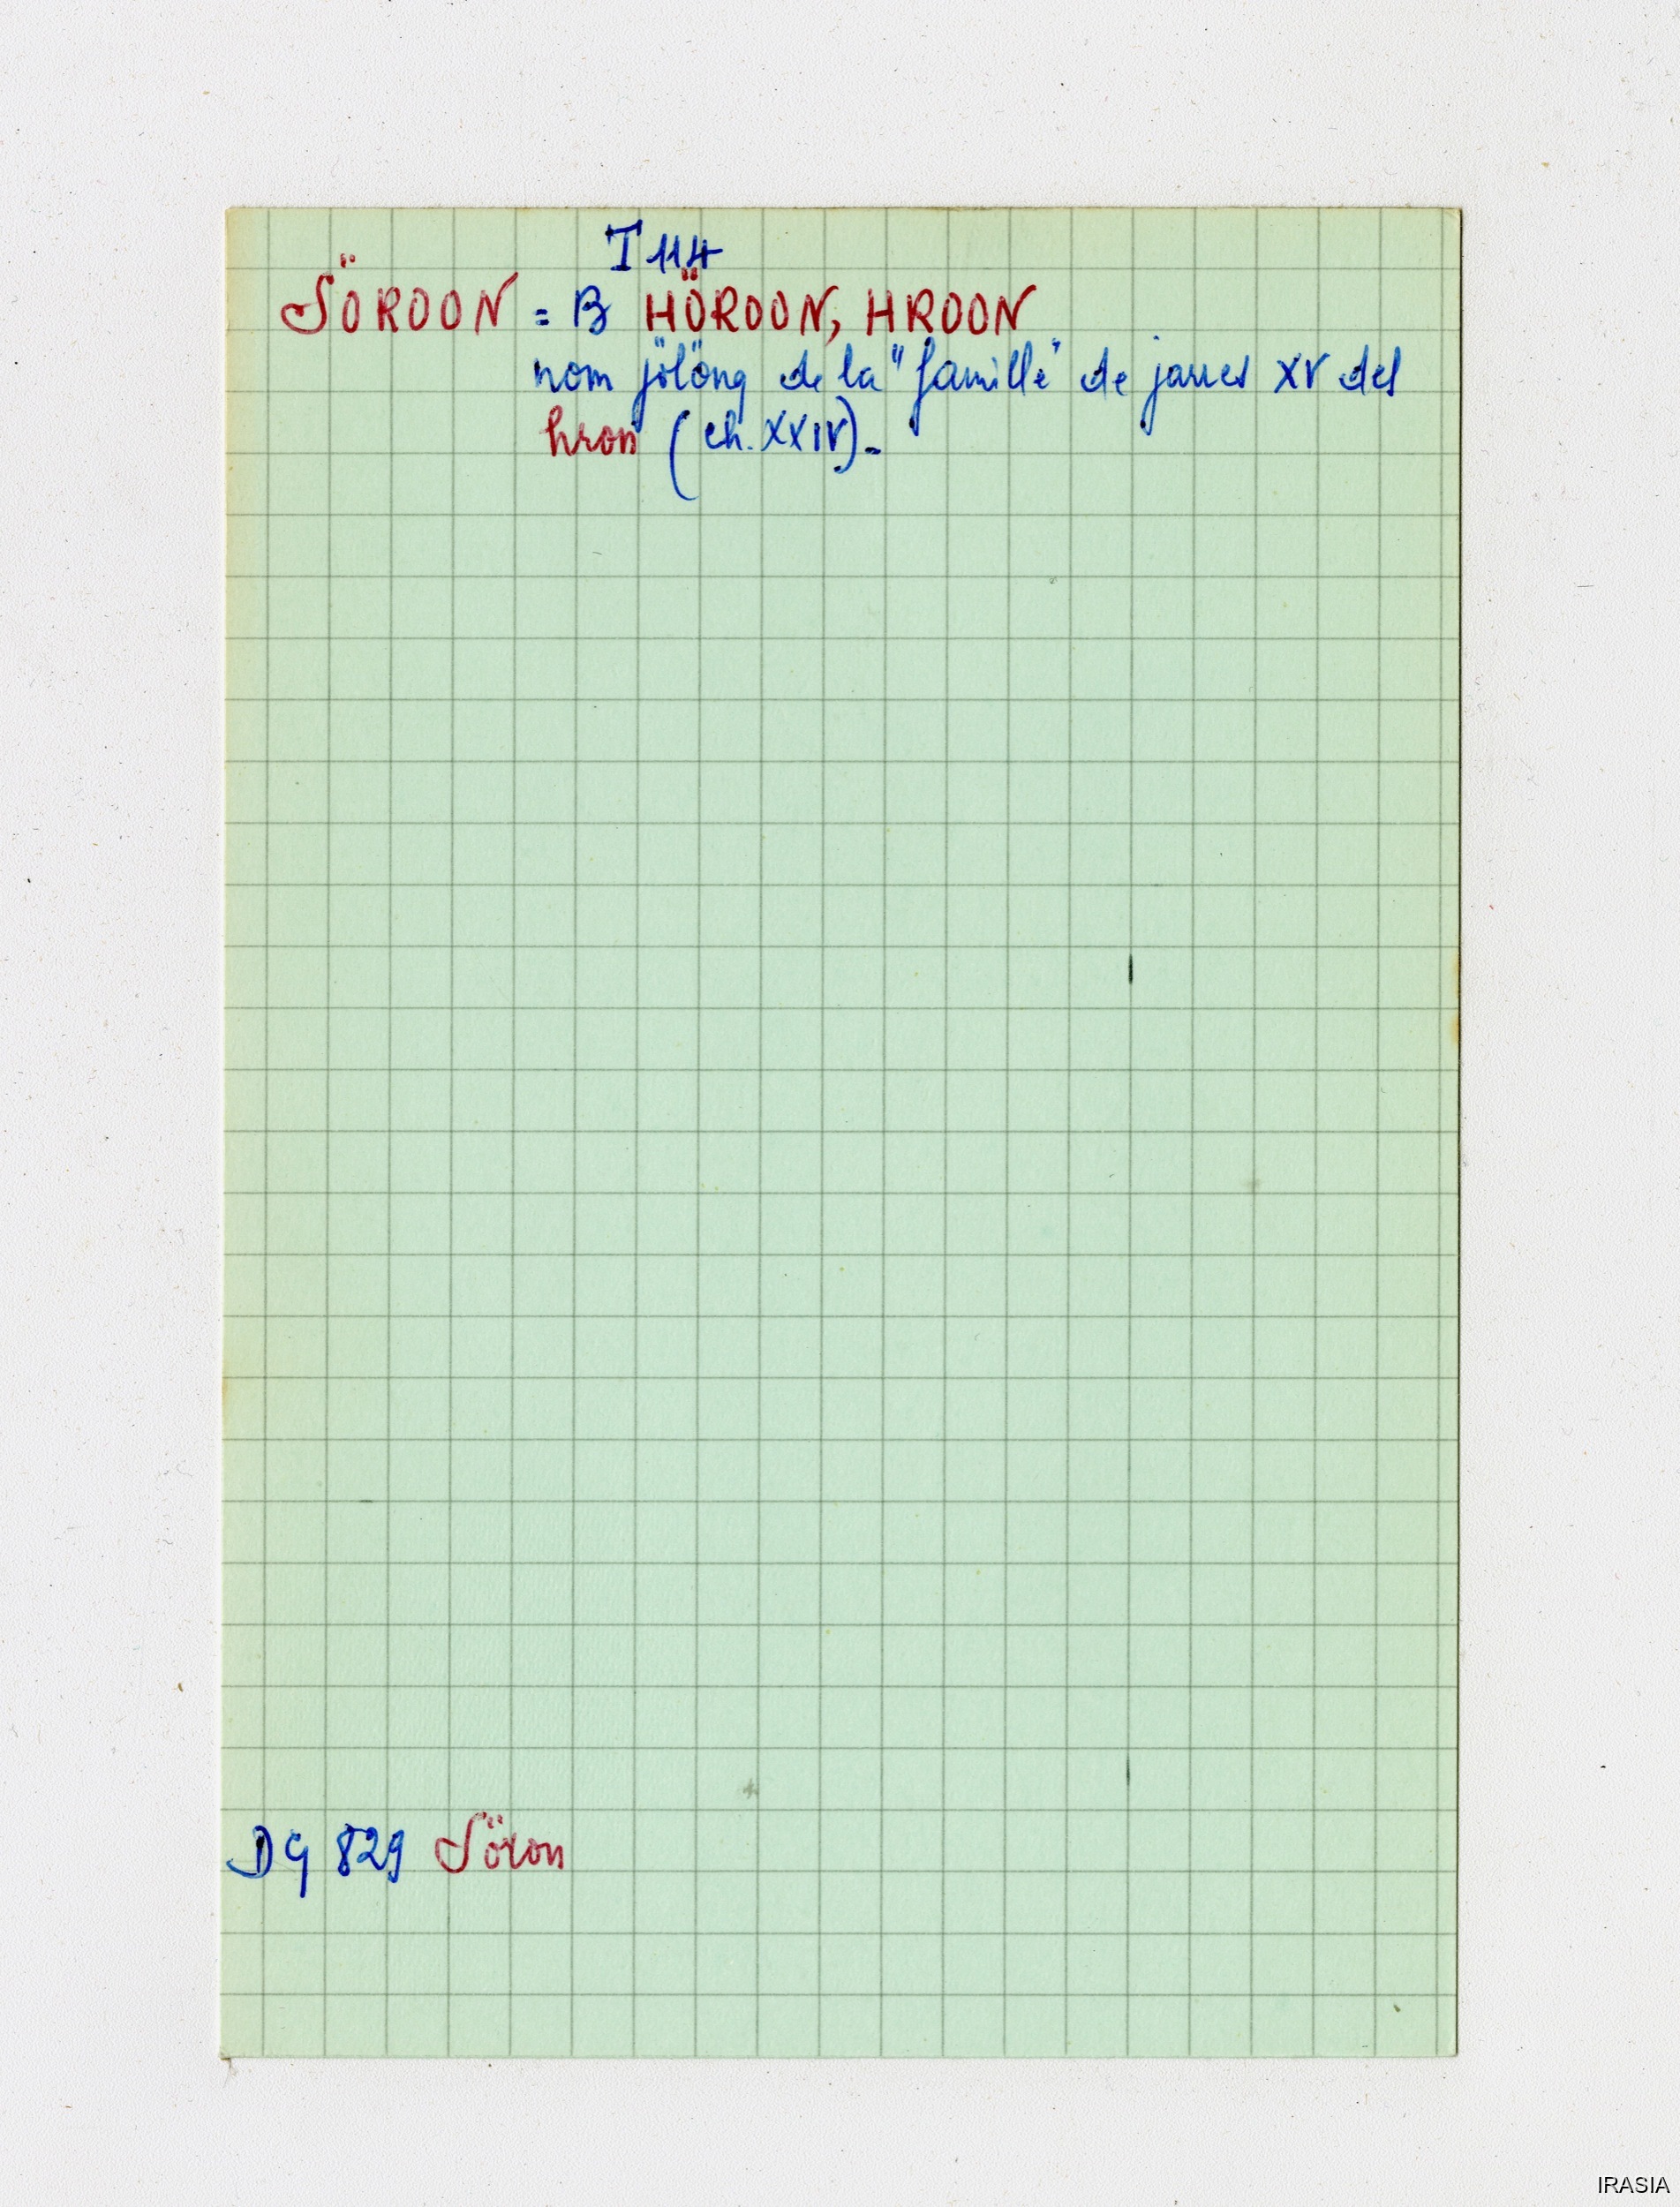 I 114
SÖROON = B HÖROON, HROON
nom jölöng de la "famille" de jarres XV des
hron (ch. XXIV).
DG 829 Söron
IRASIA